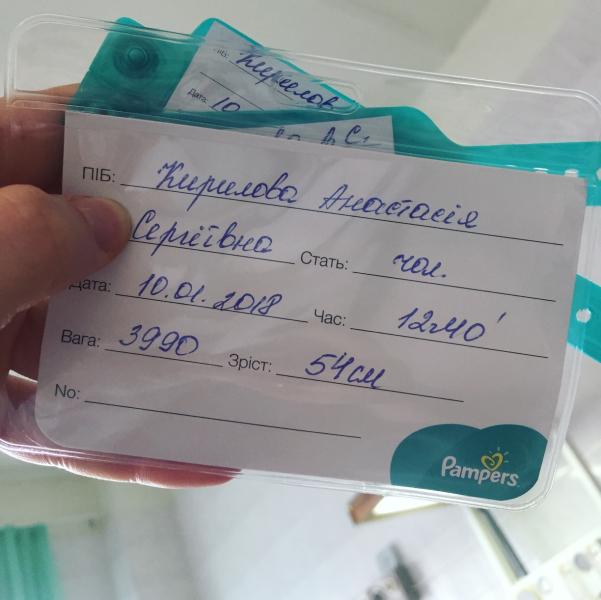 ПІБ:
Кирилов
Дата: 10
ва А.С.
ПІБ: Кирилова Анастасія
Сергіївна Стать: чол.
Дата: 10.01.2018 Час: 12ч40'
Вага: 3990 Зріст: 54см
No:
Pampers